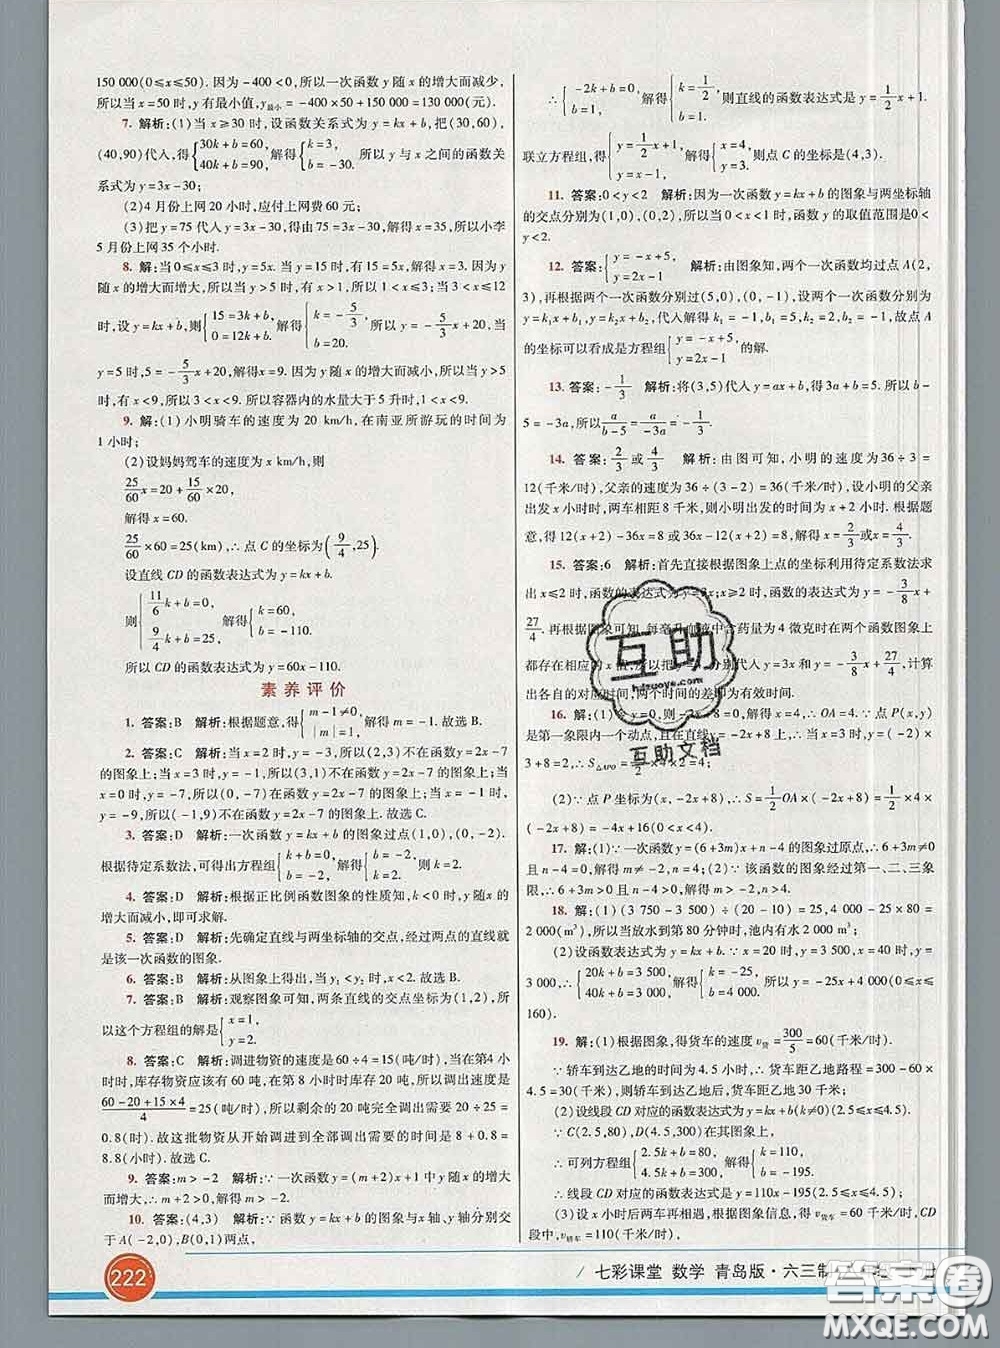 150 000(0≤x≤50). 因为-400<0,所以一次函数 y 随 x 的增大而减少,
所以当 x=50 时,y 有最小值,y最小=-400×50+150 000=130 000(元).
7. 解析:(1)当 x≥30 时,设函数关系式为 y=kx+b,把(30,60),
(40,90)代入,得{30k+b=60, 40k+b=90, 解得{k=3, b=-30. 所以 y 与 x 之间的函数关
系式为 y=3x-30;
(2)4 月份上网 20 小时,应付上网费 60 元;
(3)把 y=75 代入 y=3x-30,得由 75=3x-30,解得 x=35,所以小李
5 月份上网 35 个小时.
8. 解:当 0≤x≤3 时,y=5x. 当 y=15 时,有 5x=15,解得 x=3. 因为 y
随 x 的增大而增大,所以当 y>5 时,有 x>1,所以 1<x≤3;当 3≤x≤12
时,设 y=kx+b,则{15=3k+b, 0=12k+b. 解得{k=-5/3, b=20. 所以 y=-5/3x+20,当
y=5 时,5=-5/3x+20,解得 x=9. 因为 y 随 x 的增大而减小,所以当 y>5
时,有 x<9. 所以 3≤x<9. 所以容器内的水量大于 5 升时,1<x<9.
9. 解:(1)小明骑车的速度为 20 km/h,在南亚所游玩的时间为
1 小时;
(2)设妈妈驾车的速度为 x km/h,则
25/60x=20+15/60×20,
解得 x=60.
25/60×60=25(km),∴点 C 的坐标为(9/4,25).
设直线 CD 的函数表达式为 y=kx+b.
则{11/6k+b=0, 9/4k+b=25, 解得{k=60, b=-110.
所以 CD 的函数表达式为 y=60x-110.
素养评价
1. 答案:B 解析:根据题意,得{m-1≠0, |m|=1, 解得 m=-1. 故选 B.
2. 答案:C 解析:当 x=2 时,y=-3,所以(2,3)不在函数 y=2x-7
的图象上;当 x=3 时,y=-1,所以(3,1)不在函数 y=2x-7 的图象上;当
x=0 时,y=-7,所以(0,-7)在函数 y=2x-7 的图象上;当 x=-1 时,
y=-9,所以(-1,9)不在函数 y=2x-7 的图象上. 故选 C.
3. 答案:D 解析:一次函数 y=kx+b 的图象过点(1,0),(0,-2).
根据待定系数法,可得出方程组{k+b=0, b=-2. 解得{b=-2, k=2. 则 k=2.
4. 答案:D 解析:根据正比例函数图象的性质知,k<0,y 随 x 的
增大而减小,即可求解.
5. 答案:D 解析:先确定直线与两坐标轴的交点,经过两点的直线就
是该一次函数的图象.
6. 答案:B 解析:从图象上得出,当 y₁<y₂ 时,x<2. 故选 B.
7. 答案:B 解析:观察图象可知,两条直线的交点坐标为(1,2),所
以这个方程组的解是{x=1, y=2.
8. 答案:C 解析:调进物资的速度是 60÷4=15(吨/时),当在第4 小
时时,库存物资应该有 60 吨,在第 8 小时时库存 20 吨,所以调出速度是
(60-20+15×4)/4=25(吨/时),所以剩余的 20 吨完全调出需要 20÷25=
0.8(时). 故这批物资从开始调进到全部调出需要的时间是 8+0.8=
8.8(小时). 故选 C.
9. 答案:m>-2 解析:一次函数 y=(m+2)x+1 中 y 随 x 的增大
而增大,∴m+2>0,解得 m>-2.
10. 答案:(4,3) 解析:∵函数 y=kx+b 的图象与 x轴、y轴分别交
于 A(-2,0),B(0,1)两点,
∴{-2k+b=0, b=1, 解得{k=1/2, b=1. 则直线的函数表达式是 y=1/2x+1.
联立方程组,得{y=1/2x+1, y=x-1. 解得{x=4, y=3. 则点 C 的坐标是(4,3).
11. 答案:0<y<2 解析:因为一次函数 y=kx+b 的图象与两坐标轴
的交点分别为(1,0),(0,2),所以当 0<x<1 时,函数 y 的取值范围是0<
y<2.
12. 答案:{y=-x+5, y=2x-1 解析:由图象知,两个一次函数均过点 A(2,
3),再根据两个一次函数分别过(5,0),(0,-1),设两个一次函数分别为
y=k₁x+b₁,y=k₂x+b₂,代入解得 k₁=-1,b₁=5,k₂=2,b₂=-1,故点 A
的坐标可以看成是方程组{y=-x+5, y=2x-1 的解.
13. 答案:-1/3 解析:将(3,5)代入 y=ax+b,得 3a+b=5. 所以 b-
5=-3a,所以 a/(b-5)=a/(-3a)=-1/3.
14. 答案:2/3或4/3 解析:由图可知,小明的速度为 36÷3=
12(千米/时),父亲的速度为 36÷(3-2)=36(千米/时),设小明的父亲
出发 x 小时时,两车相距 8 千米,则小明出发的时间为 x+2 小时. 根据题
意,得 12(x+2)-36x=8 或 36x-12(x+2)=8,解得 x=2/3或 x=4/3.
15. 答案:6 解析:首先直接根据图象上点的坐标利用待定系数法求
出 x≤2 时,函数的表达式为 y=3x;x≥2 时,函数的表达式为 y=-3/8x+
27/4. 再根据图象可知,每毫升血液中含药量为 4 微克时在两个函数图象上
都存在对应的 x 值,所以,分别代入 y=3x 和 y=-3/8x+27/4,计算
出各自的对应时间,两个时间的差即为有效时间.
16. 解:(1)令 y=0,则-2x+8=0,解得 x=4,∴OA=4. ∵点 P(x,y)
是第一象限内一个动点,且在直线 y=-2x+8 上,∴当 x=3 时,y=-2×
3+8=2,∴S△APO=1/2×4×2=4;
(2)∵点 P 坐标为(x,-2x+8),∴S=1/2OA×(-2x+8)=1/2×4×
(-2x+8)=-4x+16(0<x<4).
17. 解:(1)∵一次函数 y=(6+3m)x+n-4 的图象过原点,∴6+3m≠0
且 n-4=0,解得 m≠-2,n=4;(2)∵该函数的图象经过第一、二、三象
限,∴6+3m>0 且 n-4>0,解得 m>-2,n>4.
18. 解:(1)(3 750-3 500)÷(20-10)=25,4 000-25×80=
2 000(m³),所以当放水到第 80 分钟时,池内有水 2 000 m³;
(2)设函数表达式为 y=kx+b. ∵x=20,y=3 500,x=40,y=
3 000,∴{20k+b=3 500, 40k+b=3 000, 解得{k=-25, b=4 000, 所以 y=-25x+4 000(0≤x≤
160).
19. 解:(1)根据图象,得货车的速度 v货=300/5=60(千米/时).
∵轿车到达乙地的时间为 4.5 小时,∴货车距乙地路程=300-60×
4.5=30(千米),则轿车到达乙地后,货车距乙地 30 千米;
(2)设线段 CD 对应的函数表达式为 y=kx+b(k≠0)(2.5≤x≤4.5).
∵C(2.5,80),D(4.5,300)在其图象上,
∴可列方程组{2.5k+b=80, 4.5k+b=300, 解得{k=110, b=-195,
∴线段 CD 对应的函数表达式是 y=110x-195(2.5≤x≤4.5);
(3)设 x 小时后两车再相遇,根据图象信息,得 v货车=60 千米/时,CD
段中,v轿车=110(千米/时).
222
七彩课堂 数学 青岛版·六三制
互助
hdzuoye.com
互助文档
答案圈
MXQE.COM